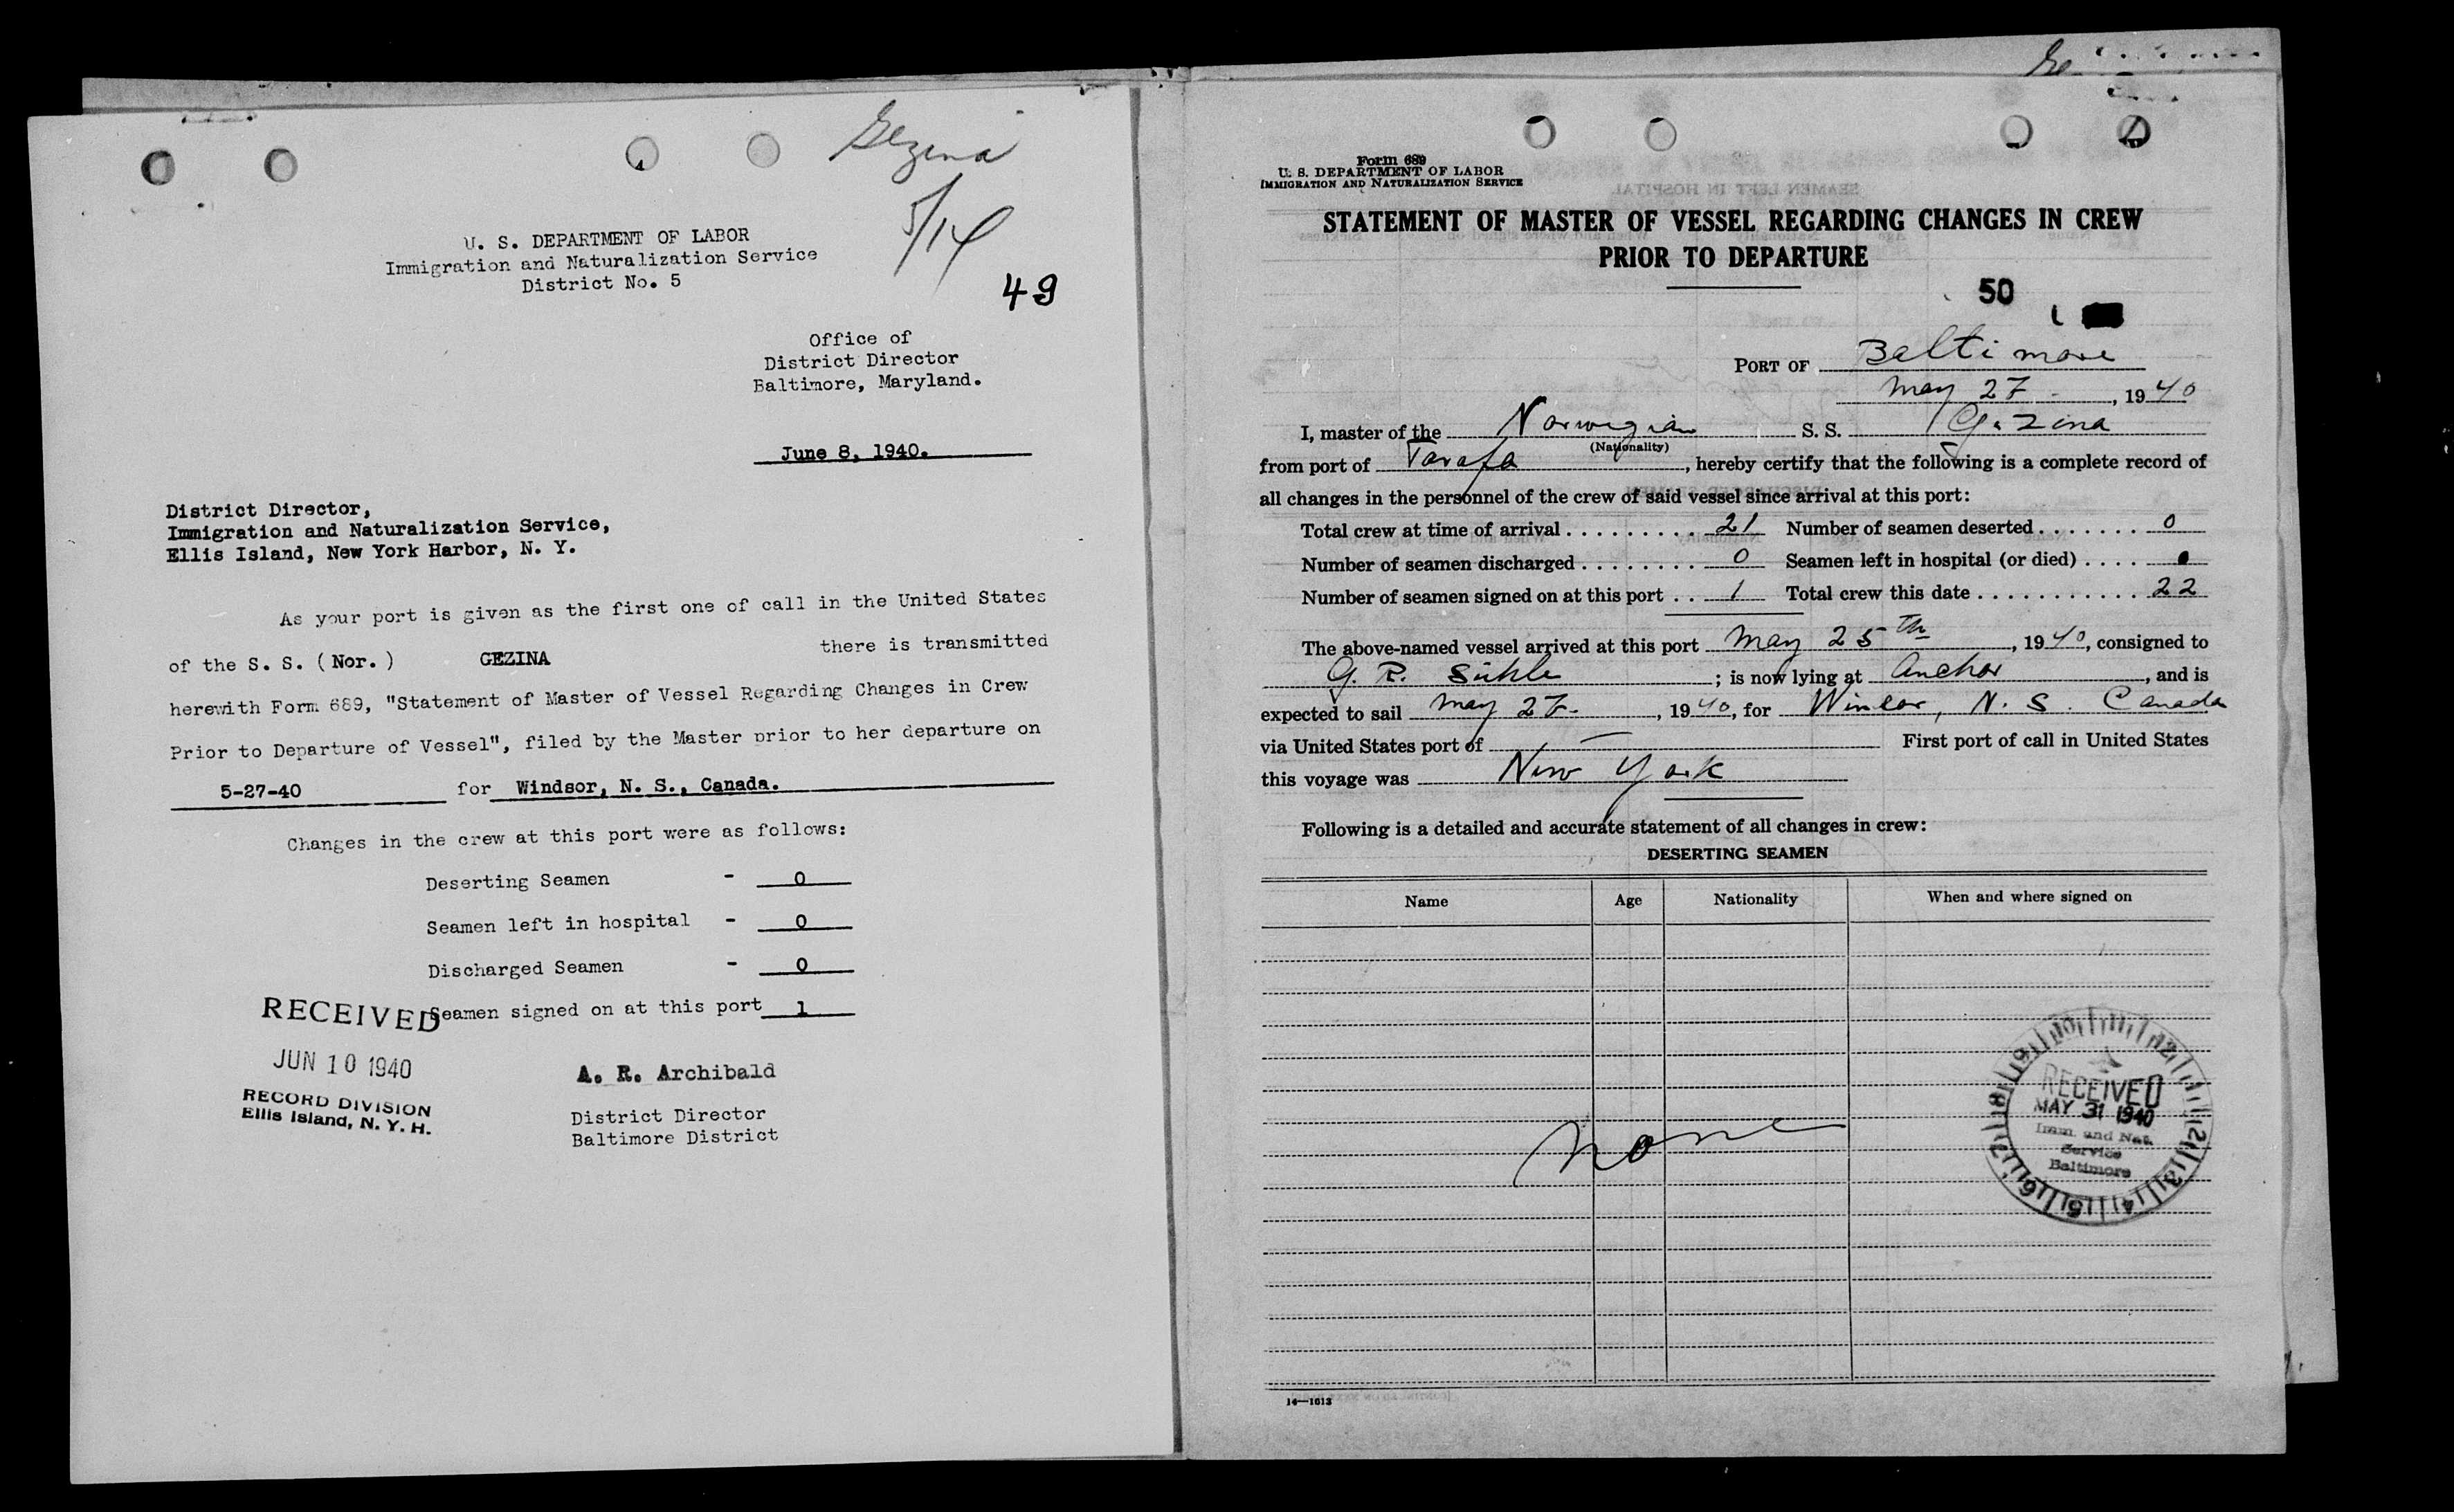 Gezina
5/14
49
U. S. DEPARTMENT OF LABOR
Immigration and Naturalization Service
District No. 5
Office of
District Director
Baltimore, Maryland.
June 8, 1940.
District Director,
Immigration and Naturalization Service,
Ellis Island, New York Harbor, N. Y.
As your port is given as the first one of call in the United States
of the S. S. (Nor.) GEZINA there is transmitted
herewith Form 689, "Statement of Master of Vessel Regarding Changes in Crew
Prior to Departure of Vessel", filed by the Master prior to her departure on
5-27-40 for Windsor, N. S., Canada.
Changes in the crew at this port were as follows:
Deserting Seamen - 0
Seamen left in hospital - 0
Discharged Seamen - 0
Seamen signed on at this port 1
RECEIVED
JUN 10 1940
RECORD DIVISION
Ellis Island, N. Y. H.
A. R. Archibald
District Director
Baltimore District
Form 689
U. S. DEPARTMENT OF LABOR
IMMIGRATION AND NATURALIZATION SERVICE
STATEMENT OF MASTER OF VESSEL REGARDING CHANGES IN CREW
PRIOR TO DEPARTURE
50
PORT OF Baltimore
May 27, 1940
I, master of the Norwegian S. S. Gezina
(Nationality)
from port of Tarafa, hereby certify that the following is a complete record of
all changes in the personnel of the crew of said vessel since arrival at this port:
Total crew at time of arrival . . . . . . . . . . 21 Number of seamen deserted . . . . . . . 0
Number of seamen discharged . . . . . . . . 0 Seamen left in hospital (or died) . . . .
Number of seamen signed on at this port . . 1 Total crew this date . . . . . . . . . . . . 22
The above-named vessel arrived at this port May 25th, 1940, consigned to
G. R. ; is now lying at Anchor, and is
expected to sail May 27-, 1940, for N. S. Canada
via United States port of — First port of call in United States
this voyage was New York
Following is a detailed and accurate statement of all changes in crew:
DESERTING SEAMEN
Name Age Nationality When and where signed on
None
RECEIVED
MAY 31 1940
Imm. and Nat.
Service
Baltimore
14—1613